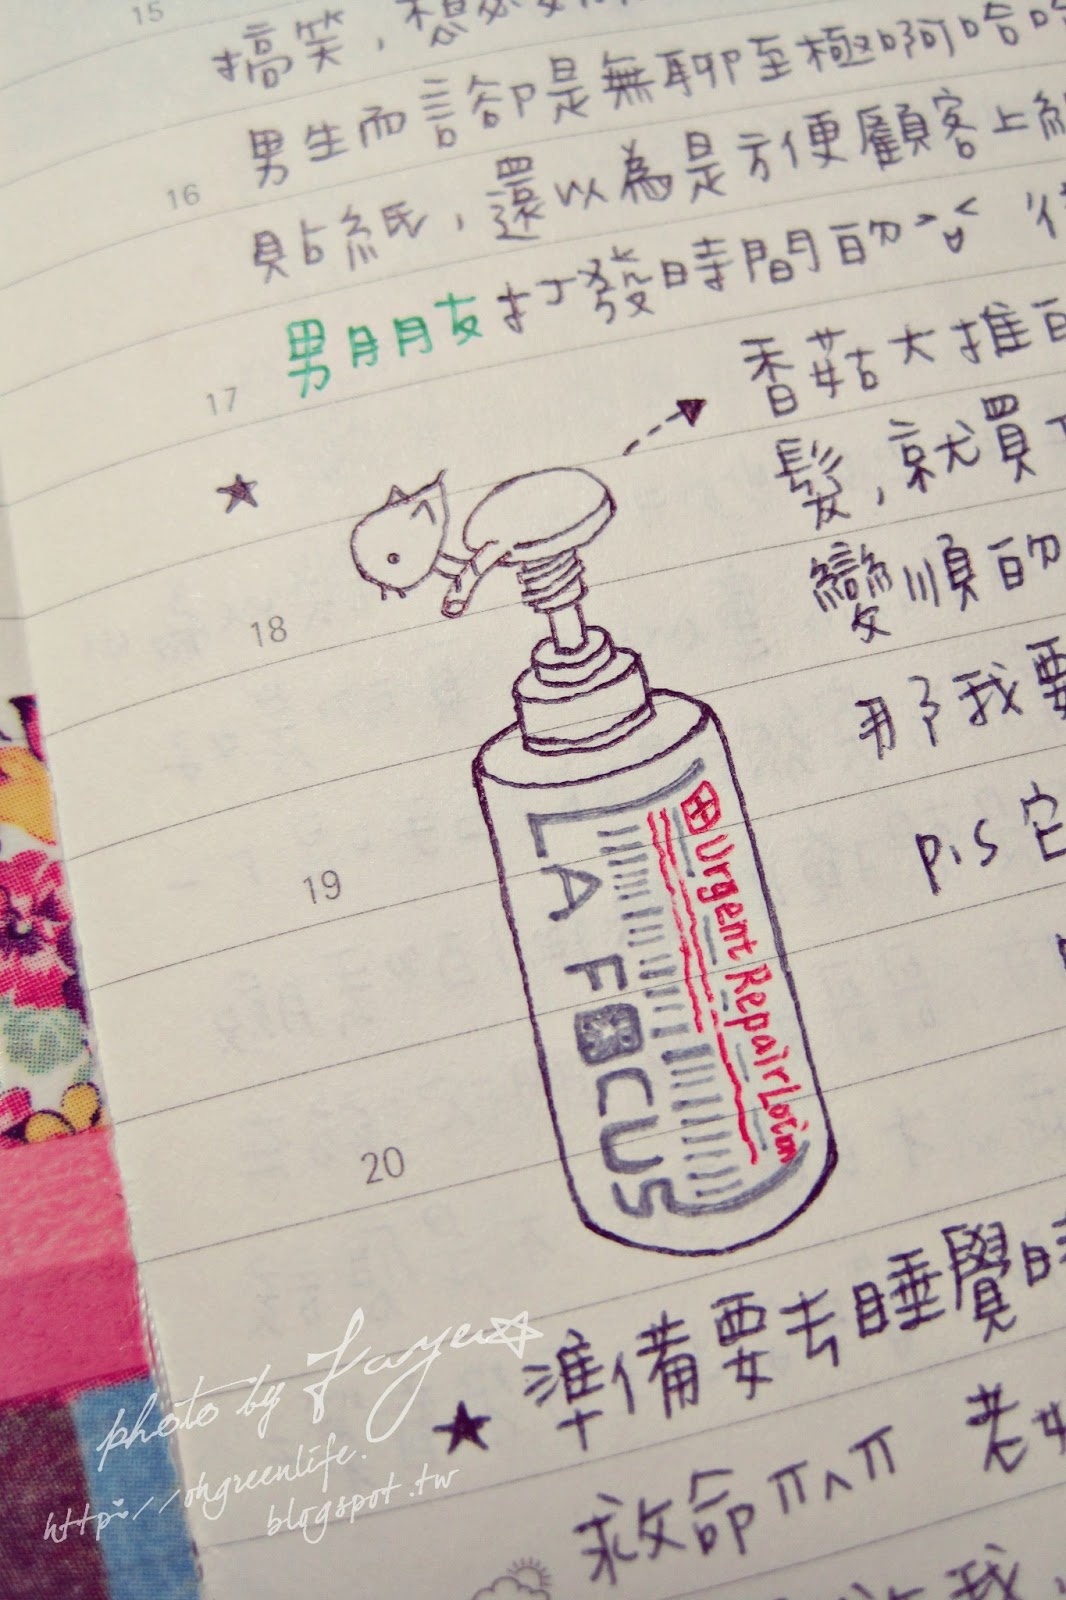 15
搞笑，想必
男生而言卻是無聊至極啊哈哈
16
貼紙，還以為是方便顧客上
男朋友打發時間的
17
香菇大推
髮，就買
變順的
18
我要
p.s 它
19
20
LA FOCUS
Urgent Repair
準備要去睡覺
救命ㄇ^ㄇ 老
我，
photo by Faye
http://ohgreenlife.
blogspot.tw